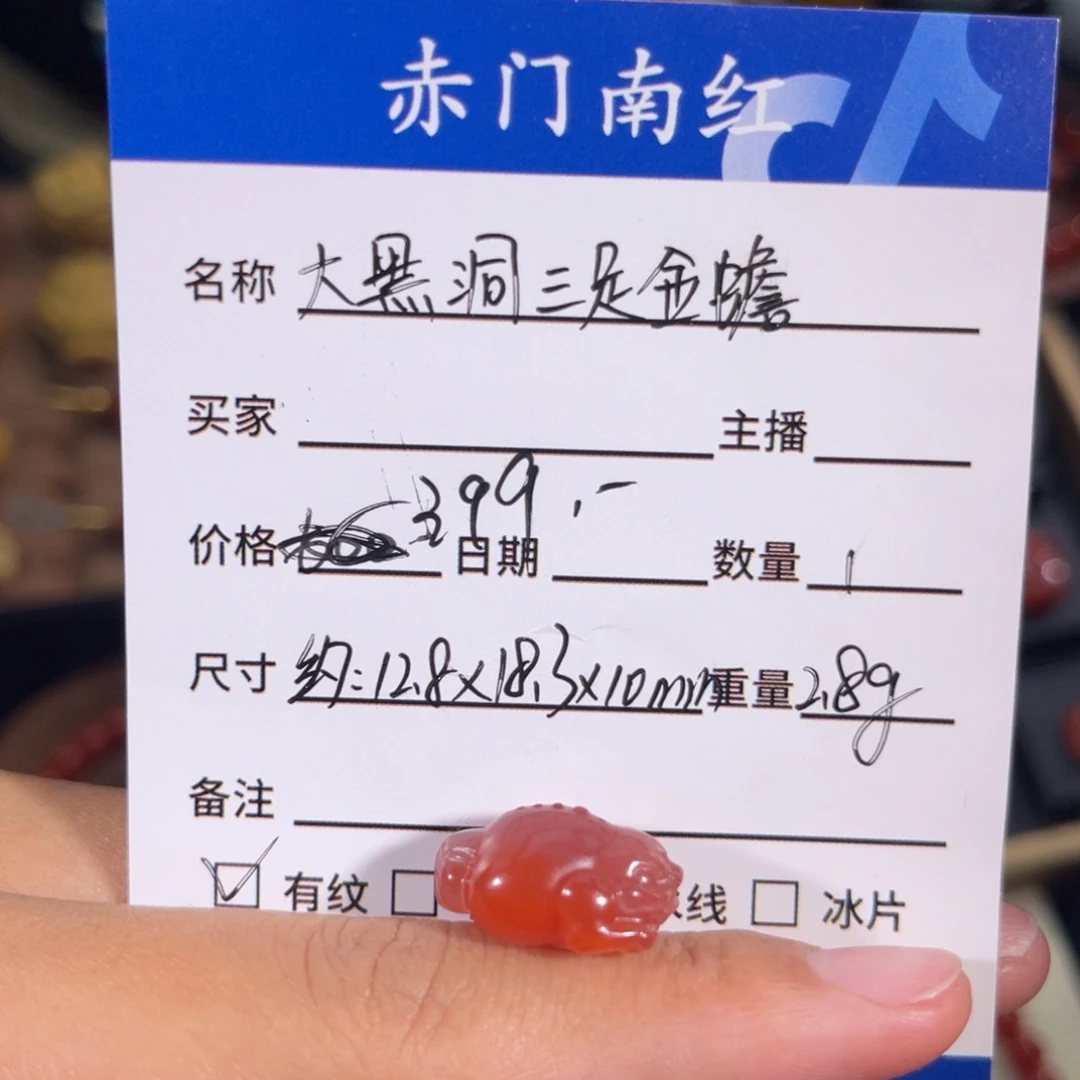 赤门南红
名称 大黑洞三足金蟾
买家 主播
价格 399.- 日期 数量 1
尺寸 约:12.8×18.3×10mm 重量 2.8g
备注
☑ 有纹 □ 线 □ 冰片